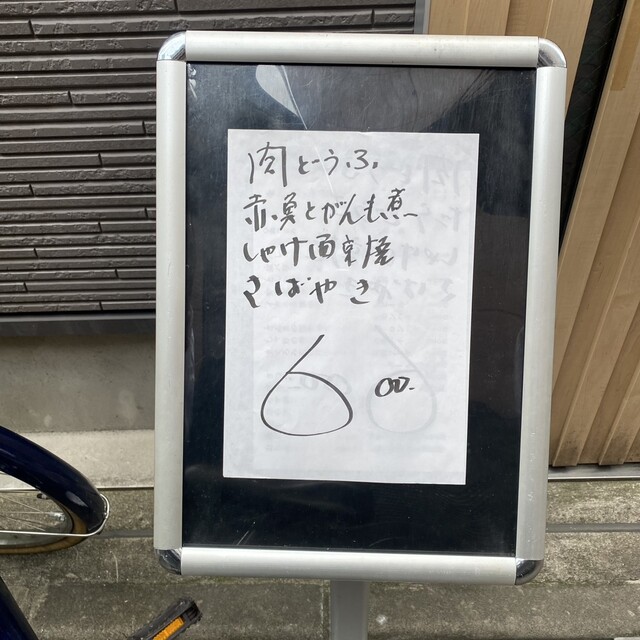 肉とうふ
赤魚とがんも煮
しゃけ西京焼
さばやき
600.